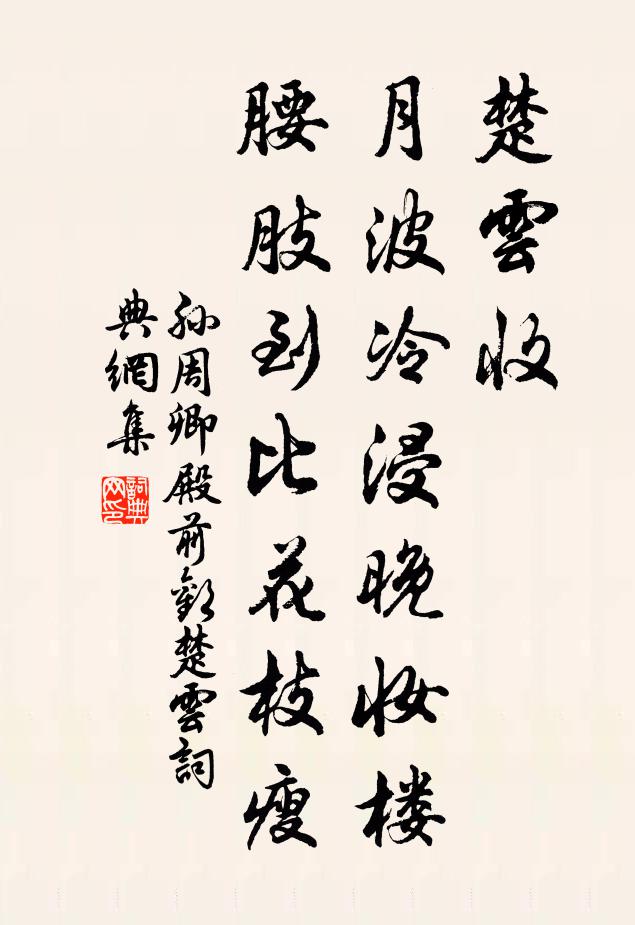 楚雲收
月波冷浸晚妆楼
腰肢到比花枝瘦
孫周卿殿前歡楚雲詞
典網集
詞典
网印